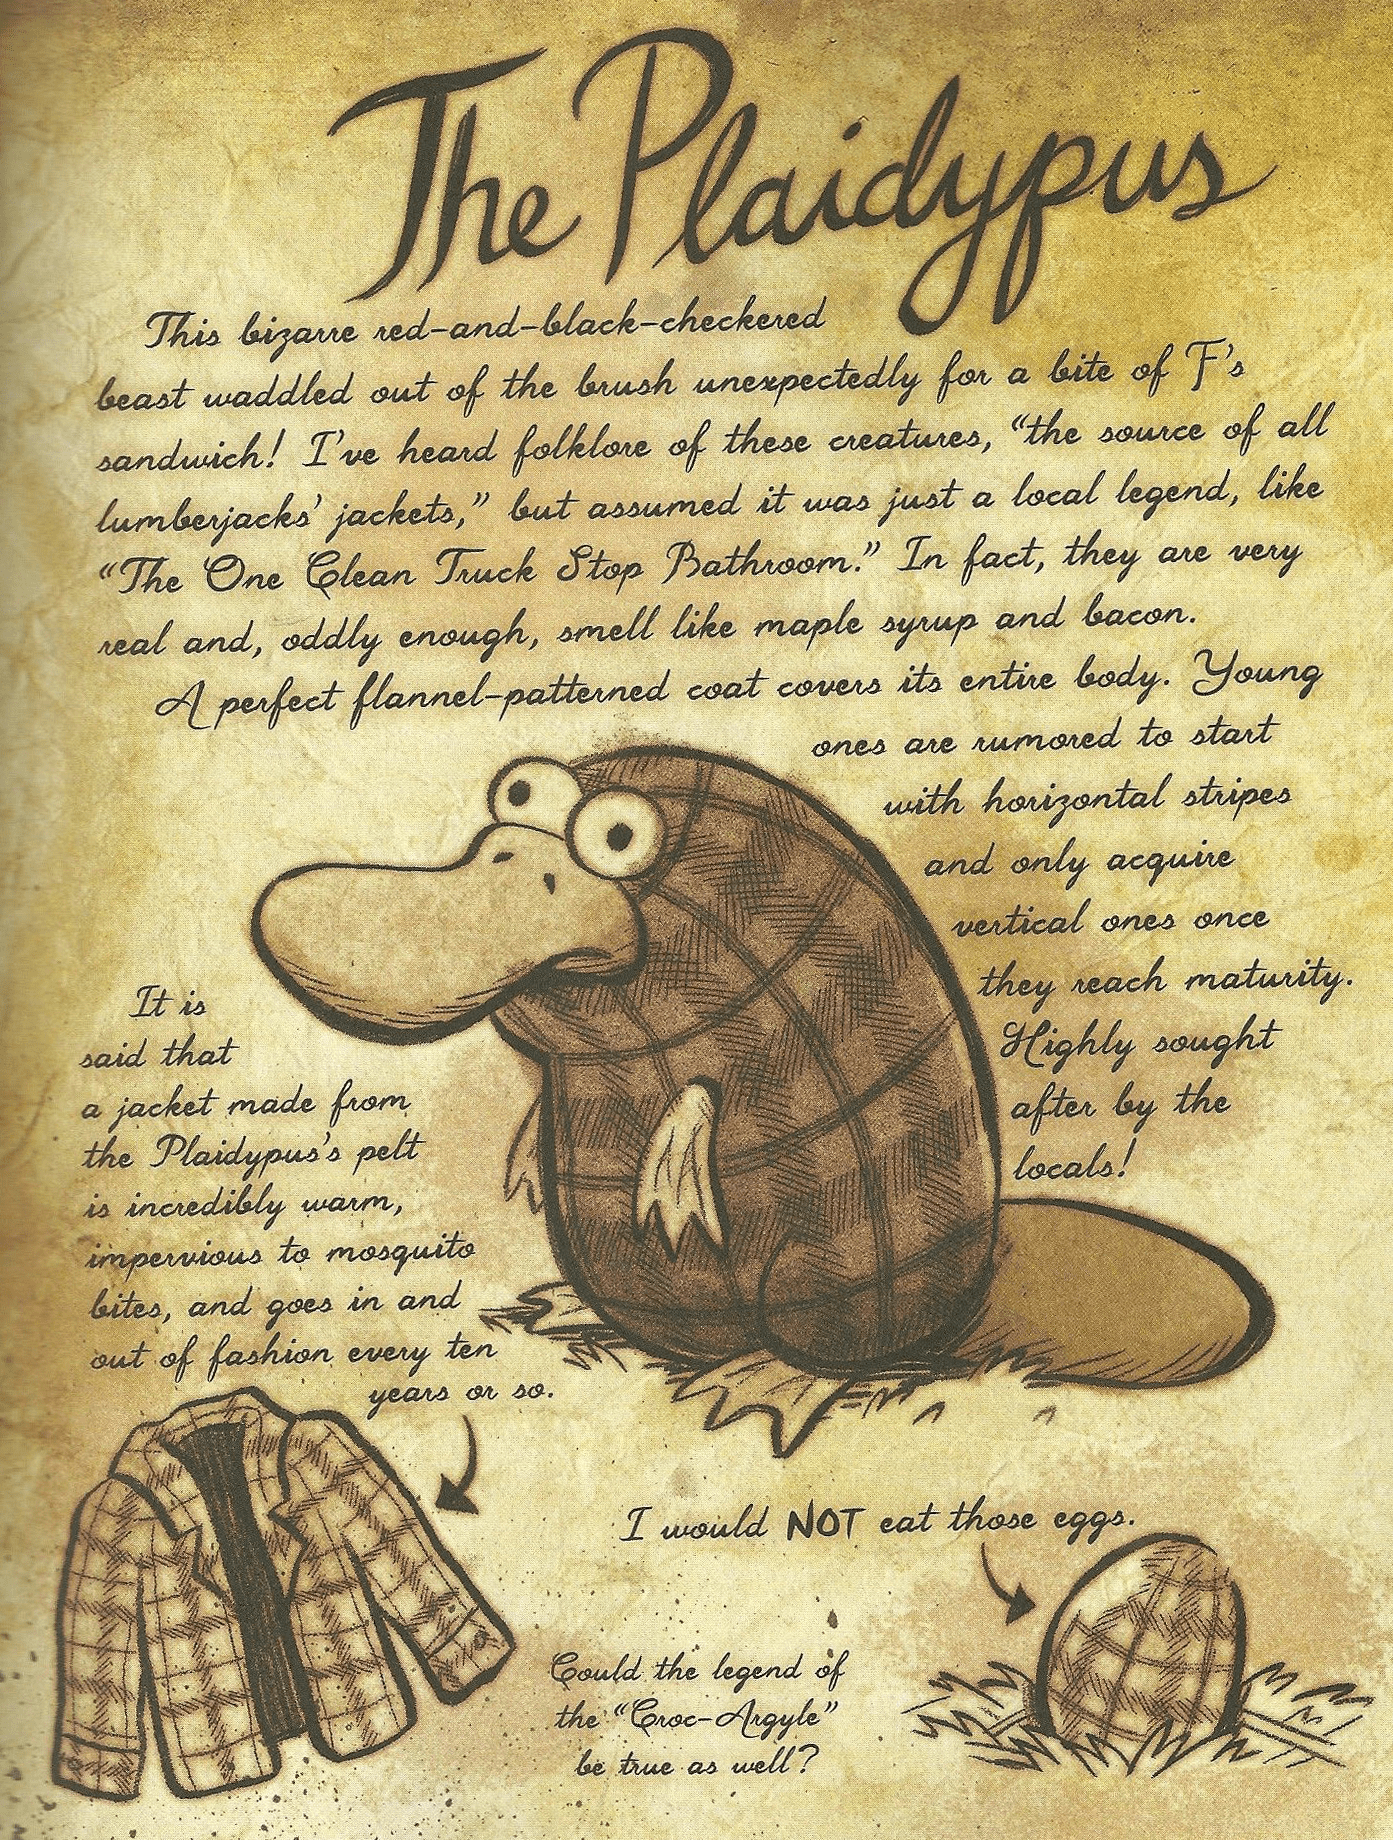 The Plaidypus
This bizarre red-and-black-checkered
beast waddled out of the brush unexpectedly for a bite of F's
sandwich! I've heard folklore of these creatures, "the source of all
lumberjacks' jackets," but assumed it was just a local legend, like
"The One Clean Truck Stop Bathroom." In fact, they are very
real and, oddly enough, smell like maple syrup and bacon.
A perfect flannel-patterned coat covers its entire body. Young
ones are rumored to start
with horizontal stripes
and only acquire
vertical ones once
they reach maturity.
Highly sought
after by the
locals!
It is
said that
a jacket made from
the Plaidypus's pelt
is incredibly warm,
impervious to mosquito
bites, and goes in and
out of fashion every ten
years or so.
I would NOT eat those eggs.
Could the legend of
the "Croc-Argyle"
be true as well?